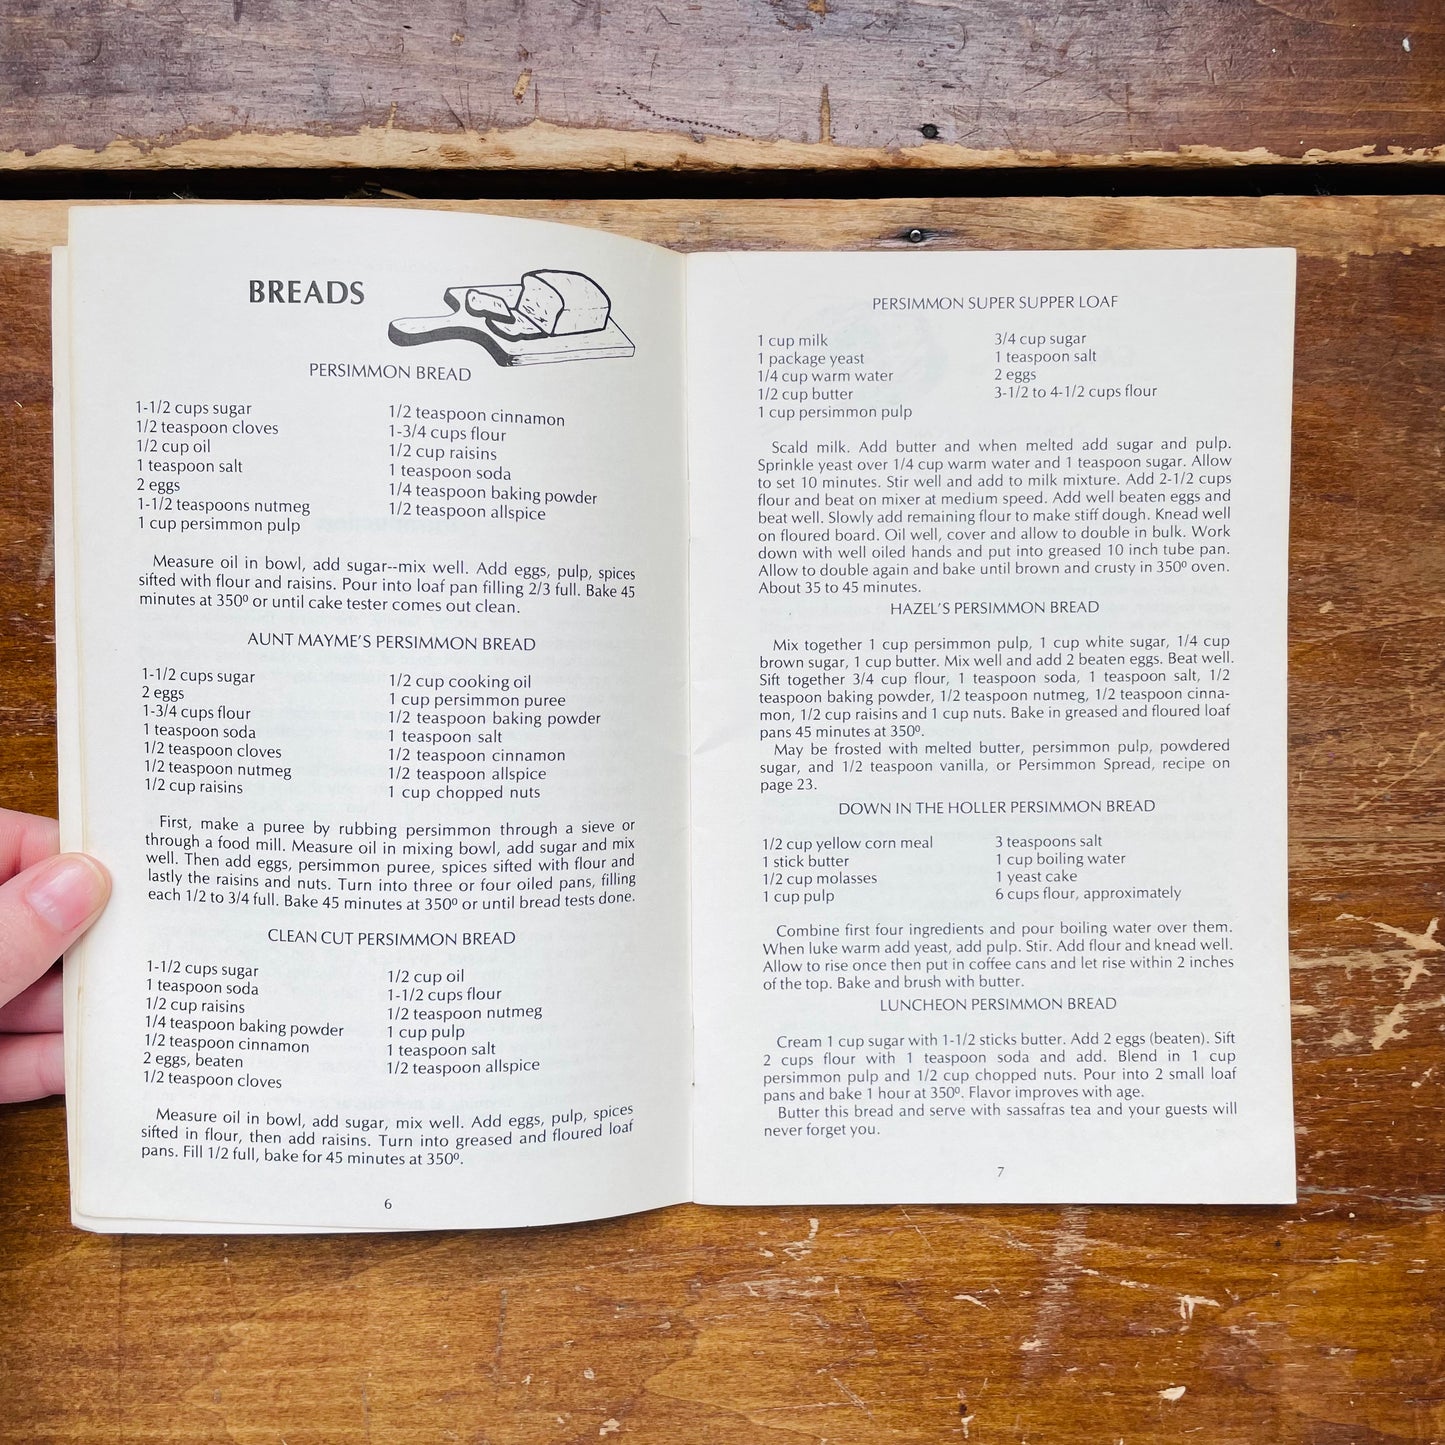 BREADS
PERSIMMON BREAD
1-1/2 cups sugar
1/2 teaspoon cloves
1/2 cup oil
1 teaspoon salt
2 eggs
1-1/2 teaspoons nutmeg
1 cup persimmon pulp
1/2 teaspoon cinnamon
1-3/4 cups flour
1/2 cup raisins
1 teaspoon soda
1/4 teaspoon baking powder
1/2 teaspoon allspice
Measure oil in bowl, add sugar--mix well. Add eggs, pulp, spices
sifted with flour and raisins. Pour into loaf pan filling 2/3 full. Bake 45
minutes at 350º or until cake tester comes out clean.
AUNT MAYME'S PERSIMMON BREAD
1-1/2 cups sugar
2 eggs
1-3/4 cups flour
1 teaspoon soda
1/2 teaspoon cloves
1/2 teaspoon nutmeg
1/2 cup raisins
1/2 cup cooking oil
1 cup persimmon puree
1/2 teaspoon baking powder
1 teaspoon salt
1/2 teaspoon cinnamon
1/2 teaspoon allspice
1 cup chopped nuts
First, make a puree by rubbing persimmon through a sieve or
through a food mill. Measure oil in mixing bowl, add sugar and mix
well. Then add eggs, persimmon puree, spices sifted with flour and
lastly the raisins and nuts. Turn into three or four oiled pans, filling
each 1/2 to 3/4 full. Bake 45 minutes at 350º or until bread tests done.
CLEAN CUT PERSIMMON BREAD
1-1/2 cups sugar
1 teaspoon soda
1/2 cup raisins
1/4 teaspoon baking powder
1/2 teaspoon cinnamon
2 eggs, beaten
1/2 teaspoon cloves
1/2 cup oil
1-1/2 cups flour
1/2 teaspoon nutmeg
1 cup pulp
1 teaspoon salt
1/2 teaspoon allspice
Measure oil in bowl, add sugar, mix well. Add eggs, pulp, spices
sifted in flour, then add raisins. Turn into greased and floured loaf
pans. Fill 1/2 full, bake for 45 minutes at 350º.
6
PERSIMMON SUPER SUPPER LOAF
1 cup milk
1 package yeast
1/4 cup warm water
1/2 cup butter
1 cup persimmon pulp
3/4 cup sugar
1 teaspoon salt
2 eggs
3-1/2 to 4-1/2 cups flour
Scald milk. Add butter and when melted add sugar and pulp.
Sprinkle yeast over 1/4 cup warm water and 1 teaspoon sugar. Allow
to set 10 minutes. Stir well and add to milk mixture. Add 2-1/2 cups
flour and beat on mixer at medium speed. Add well beaten eggs and
beat well. Slowly add remaining flour to make stiff dough. Knead well
on floured board. Oil well, cover and allow to double in bulk. Work
down with well oiled hands and put into greased 10 inch tube pan.
Allow to double again and bake until brown and crusty in 350º oven.
About 35 to 45 minutes.
HAZEL'S PERSIMMON BREAD
Mix together 1 cup persimmon pulp, 1 cup white sugar, 1/4 cup
brown sugar, 1 cup butter. Mix well and add 2 beaten eggs. Beat well.
Sift together 3/4 cup flour, 1 teaspoon soda, 1 teaspoon salt, 1/2
teaspoon baking powder, 1/2 teaspoon nutmeg, 1/2 teaspoon cinna-
mon, 1/2 cup raisins and 1 cup nuts. Bake in greased and floured loaf
pans 45 minutes at 350º.
May be frosted with melted butter, persimmon pulp, powdered
sugar, and 1/2 teaspoon vanilla, or Persimmon Spread, recipe on
page 23.
DOWN IN THE HOLLER PERSIMMON BREAD
1/2 cup yellow corn meal
1 stick butter
1/2 cup molasses
1 cup pulp
3 teaspoons salt
1 cup boiling water
1 yeast cake
6 cups flour, approximately
Combine first four ingredients and pour boiling water over them.
When luke warm add yeast, add pulp. Stir. Add flour and knead well.
Allow to rise once then put in coffee cans and let rise within 2 inches
of the top. Bake and brush with butter.
LUNCHEON PERSIMMON BREAD
Cream 1 cup sugar with 1-1/2 sticks butter. Add 2 eggs (beaten). Sift
2 cups flour with 1 teaspoon soda and add. Blend in 1 cup
persimmon pulp and 1/2 cup chopped nuts. Pour into 2 small loaf
pans and bake 1 hour at 350º. Flavor improves with age.
Butter this bread and serve with sassafras tea and your guests will
never forget you.
7